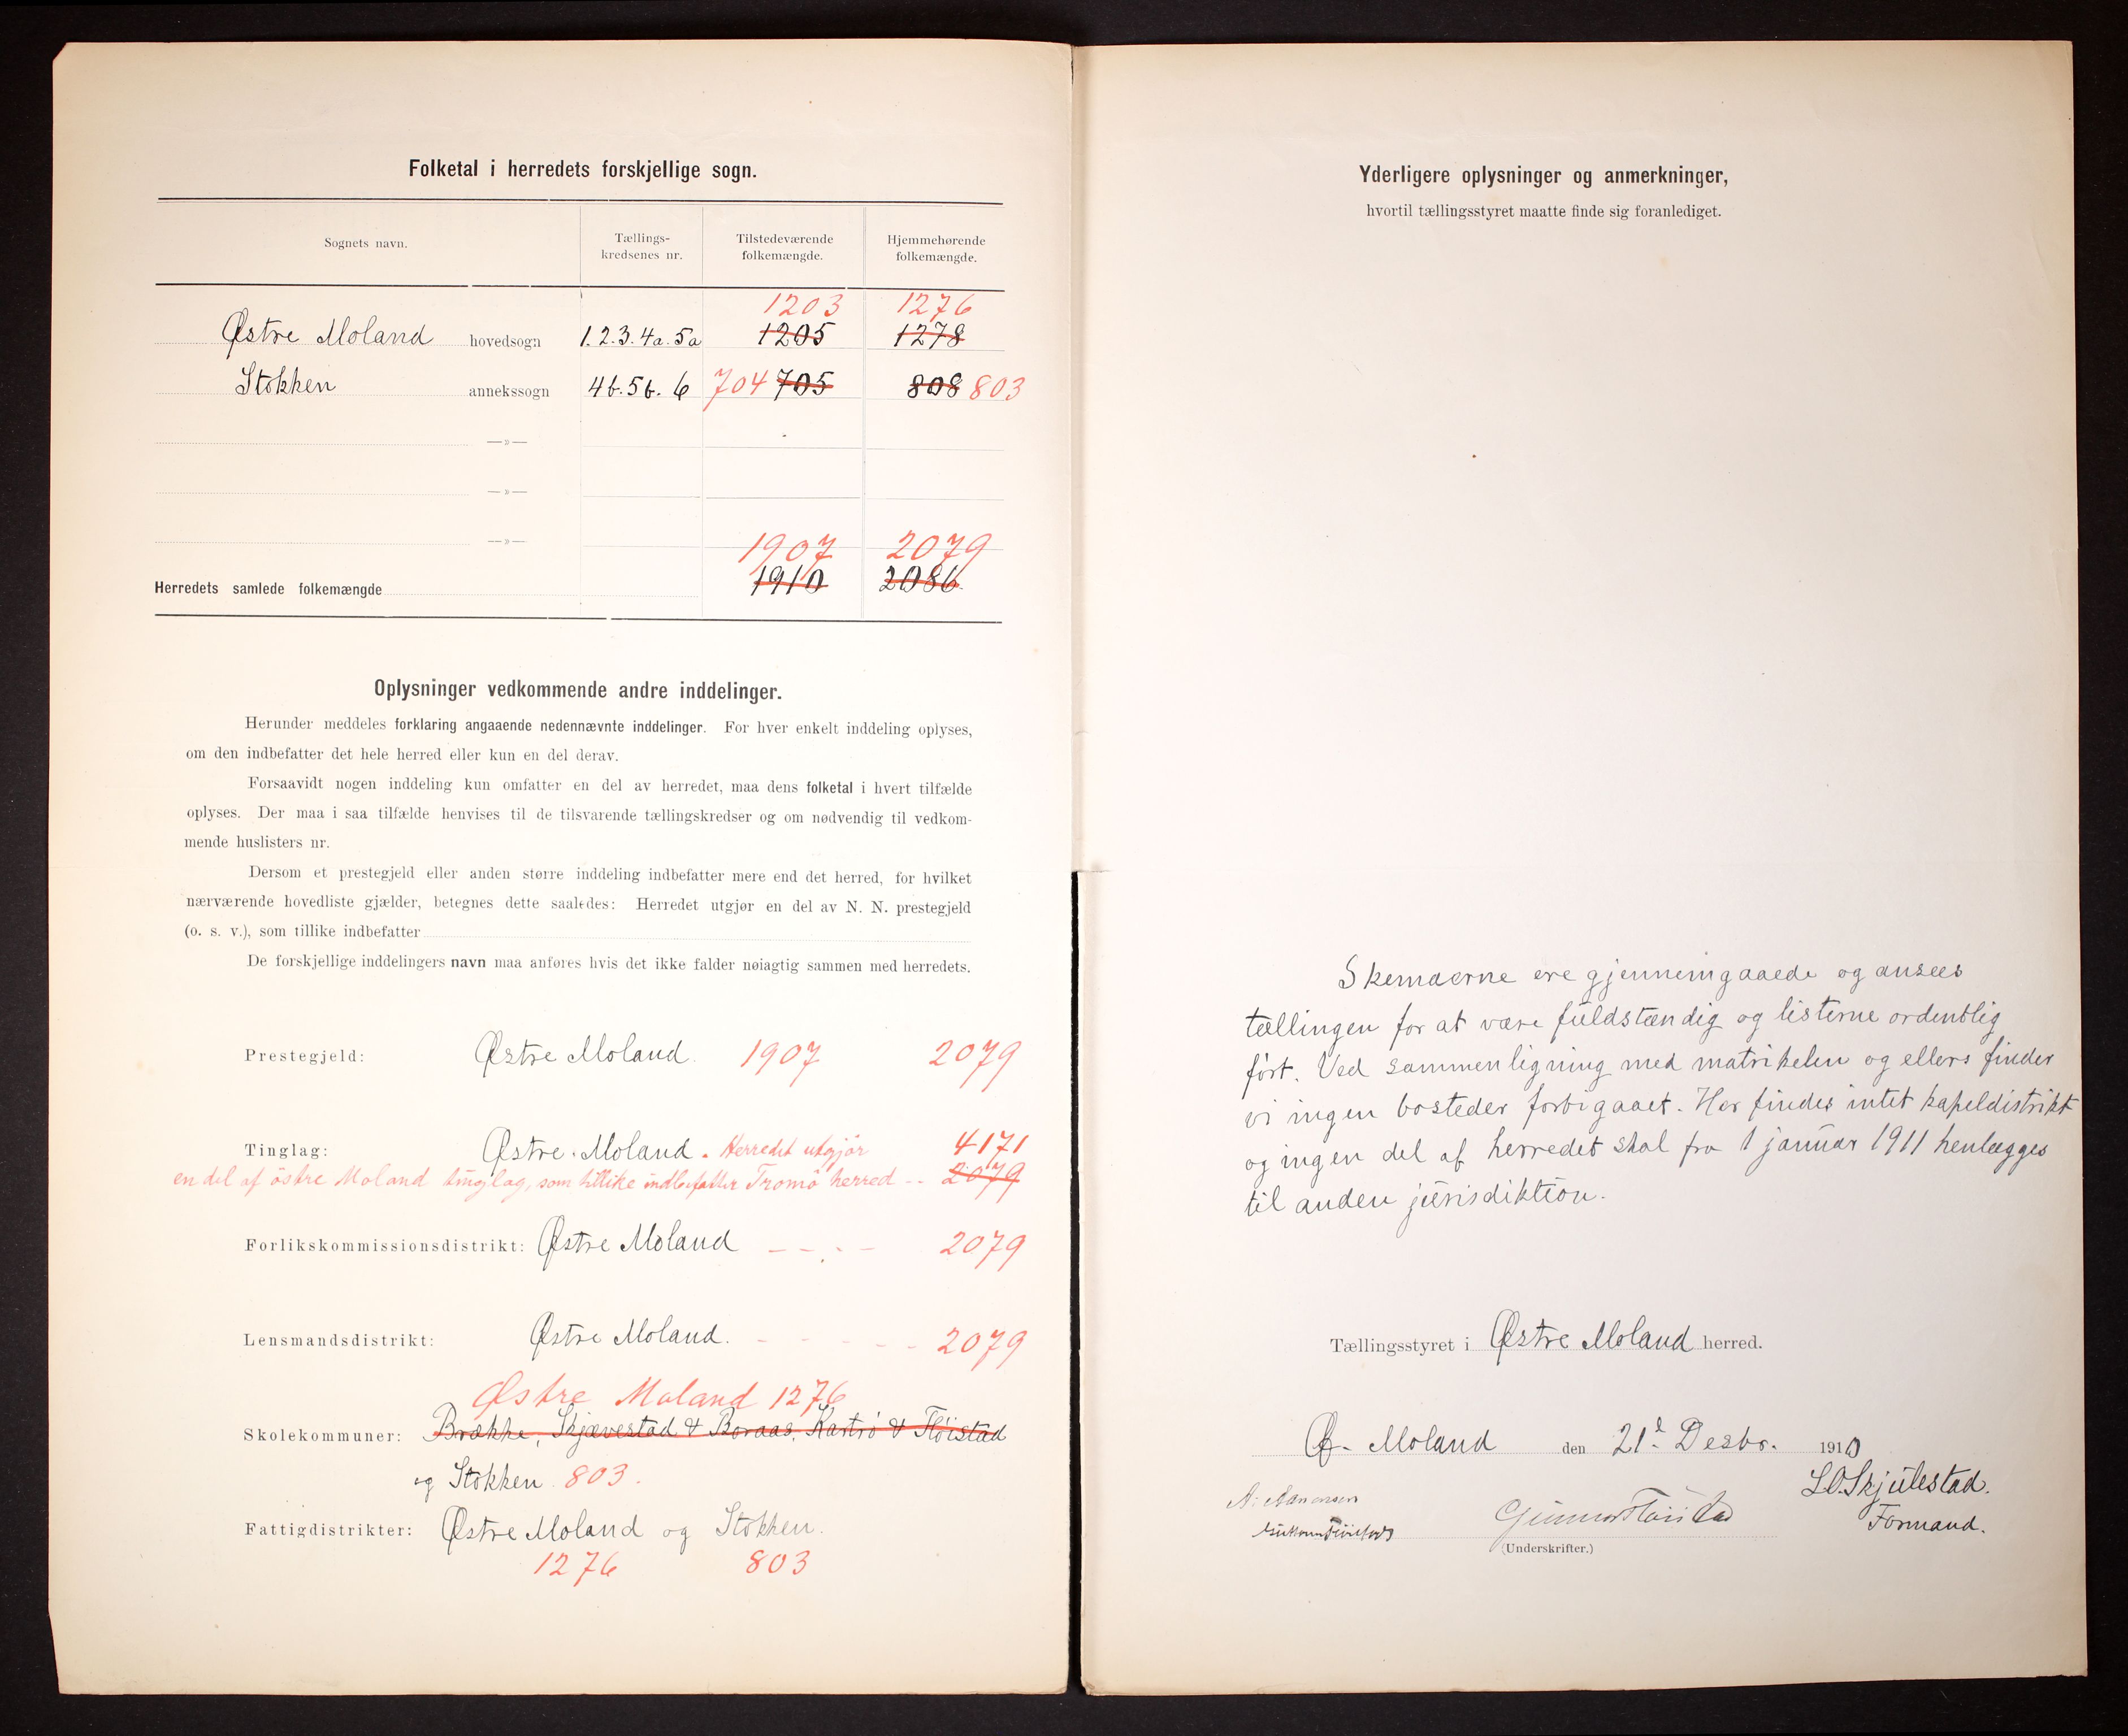 Folketal i herredets forskjellige sogn.
Sognets navn. Tællings-kredsenes nr. Tilstedeværende folkemængde. Hjemmehørende folkemængde.
1203 1276
Østre Moland hovedsogn 1.2.3.4a.5a 1205 1278
Stokken annekssogn 4b.5b.6 704 705 808 803
—»—
—»—
—»— 1907 2079
Herredets samlede folkemængde 1910 2086
Oplysninger vedkommende andre inddelinger.
Herunder meddeles forklaring angaaende nedennævnte inddelinger. For hver enkelt inddeling oplyses,
om den indbefatter det hele herred eller kun en del derav.
Forsaavidt nogen inddeling kun omfatter en del av herredet, maa dens folketal i hvert tilfælde
oplyses. Der maa i saa tilfælde henvises til de tilsvarende tællingskredser og om nødvendig til vedkom-
mende huslisters nr.
Dersom et prestegjeld eller anden større inddeling indbefatter mere end det herred, for hvilket
nærværende hovedliste gjælder, betegnes dette saaledes: Herredet utgjør en del av N. N. prestegjeld
(o. s. v.), som tillike indbefatter
De forskjellige inddelingers navn maa anføres hvis det ikke falder nøiagtig sammen med herredets.
Prestegjeld: Østre Moland. 1907 2079
Tinglag: Østre Moland. Herredet utgjør 4171
en del af östre Moland tinglag, som tillike indbefatter Tromö herred -- 2079
Forlikskommissionsdistrikt: Østre Moland - - - - 2079
Lensmandsdistrikt: Østre Moland. - - - - - 2079
Østre Moland 1276
Skolekommuner: Brække, Skjævestad & Boraas, & Flöistad
og Stokken 803.
Fattigdistrikter: Østre Moland og Stokken.
1276 803
Yderligere oplysninger og anmerkninger,
hvortil tællingsstyret maatte finde sig foranlediget.
Skemaerne ere gjennemgaaede og ansees
tællingen for at være fuldstændig og listerne ordentlig
fört. Ved sammenligning med matrikelen og ellers finder
vi ingen bosteder forbigaaet. Her findes intet kapeldistrikt
og ingen del af herredet skal fra 1 januar 1911 henlægges
til anden jurisdiktion.
Tællingsstyret i Østre Moland herred.
Ø. Moland den 21d Desbr. 1910
S.O.Skjulestad.
Gunnar Flöistad
Formand.
(Underskrifter.)